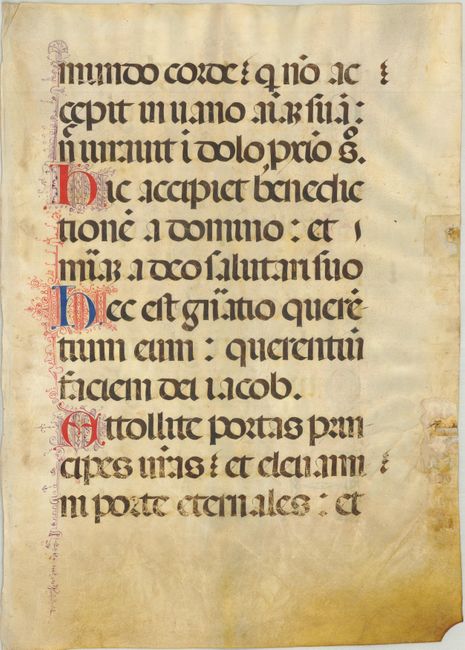 mundo corde : q nō ac
cepit in uano aīaʒ suā :
n̄ iurauit i dolo, p̄xīo s̄.
Hic accipiet benedic
tionē a domino : et
mīaʒ a deo salutari suo
Hec est gn̄atio querē
tium eum : querentiū
faciem dei iacob.
Attollite portas prin
cipes ur̄as : et eleuami
ni porte eternales : et